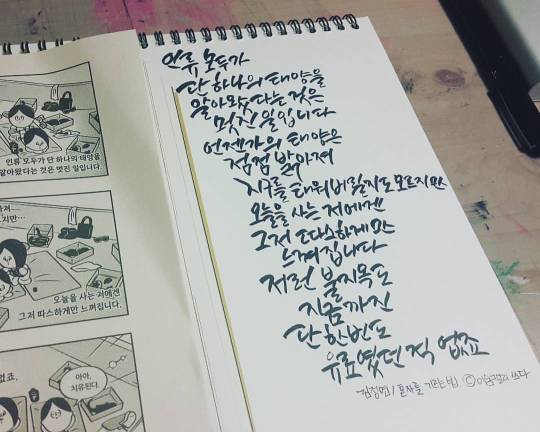 인류 모두가 단 하나의 태양을
알아왔다는 것은 멋진 일입니다.
오늘을 사는 저에겐
그저 따스하게만 느껴집니다.
아아,
치유된다.
인류 모두가
단 하나의 태양을
알아왔다는 것은
멋진 일입니다
언젠가의 태양은
점점 밝아져
지구를 태워버릴지도 모르지만
오늘을 사는 저에겐
그저 따스하게만
느껴집니다
저런 불지옥도
지금까진
단 한번도
유료였던 적 없죠